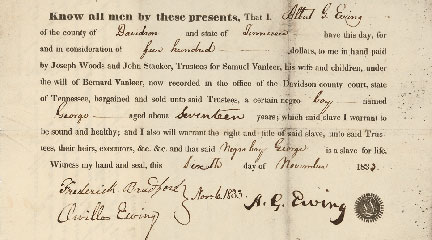 Know all men by these presents, That I Albert G. Ewing
of the county of Davidson and state of Tennessee have this day, for
and in consideration of five hundred dollars, to me in hand paid
by Joseph Woods and John Stacker, Trustees for Samuel Vanleer, his wife and children, under
the will of Bernard Vanleer, now recorded in the office of the Davidson county court, state
of Tennessee, bargained and sold unto said Trustees, a certain negro boy named
George aged about Seventeen years; which said slave I warrant to
be sound and healthy; and I also will warrant the right and title of said slave, unto said Trus-
tees, their heirs, executors, &c. &c. and that said Negro boy George is a slave for life.
Witness my hand and seal, this Sixth day of November 1833.
Frederick Bradford
Orville Ewing
Nov. 6. 1833
A. G. Ewing